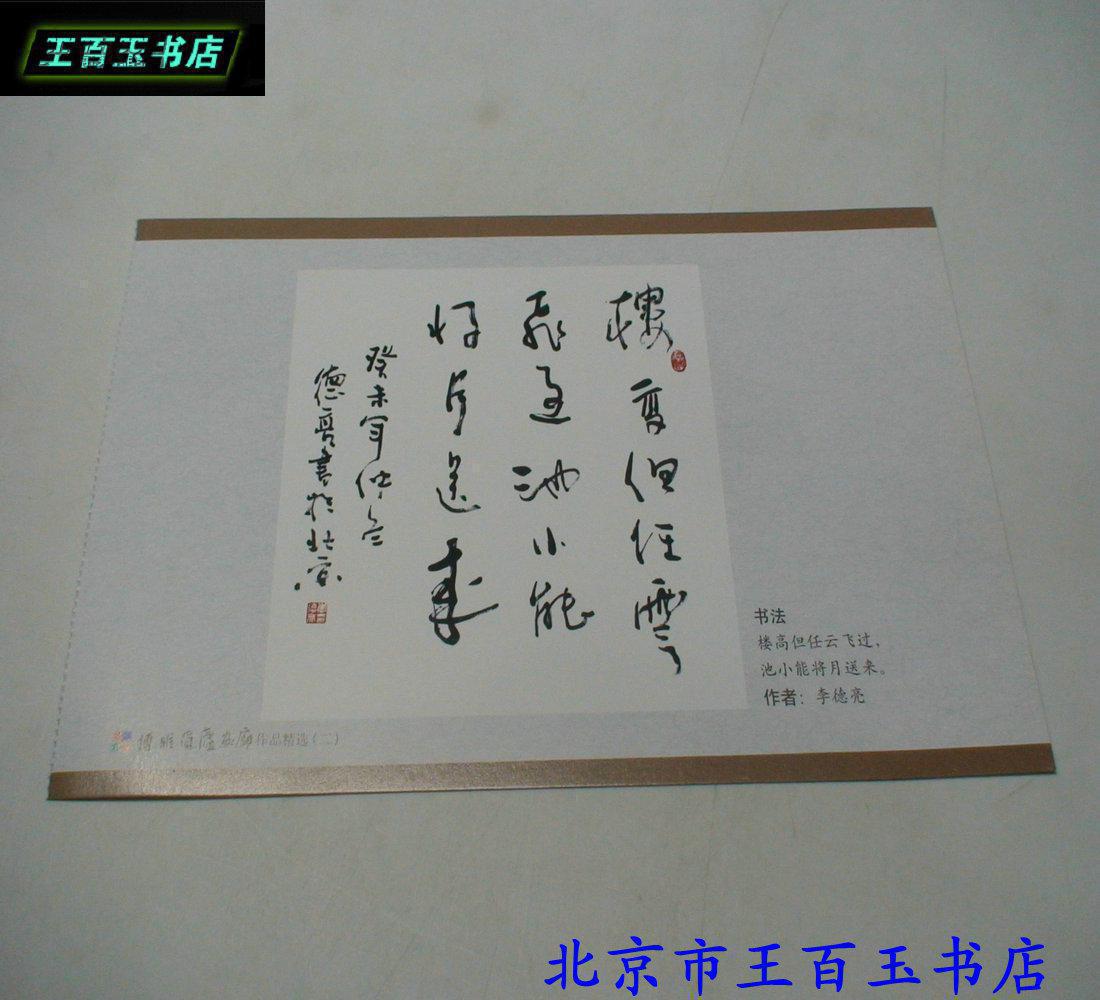 王百玉书店
樓高但任雲
飛過池小能
將月送來
癸未年仲冬
德亮書於北京
书法
楼高但任云飞过，
池小能将月送来。
作者：李德亮
作品精选（二）
北京市王百玉书店